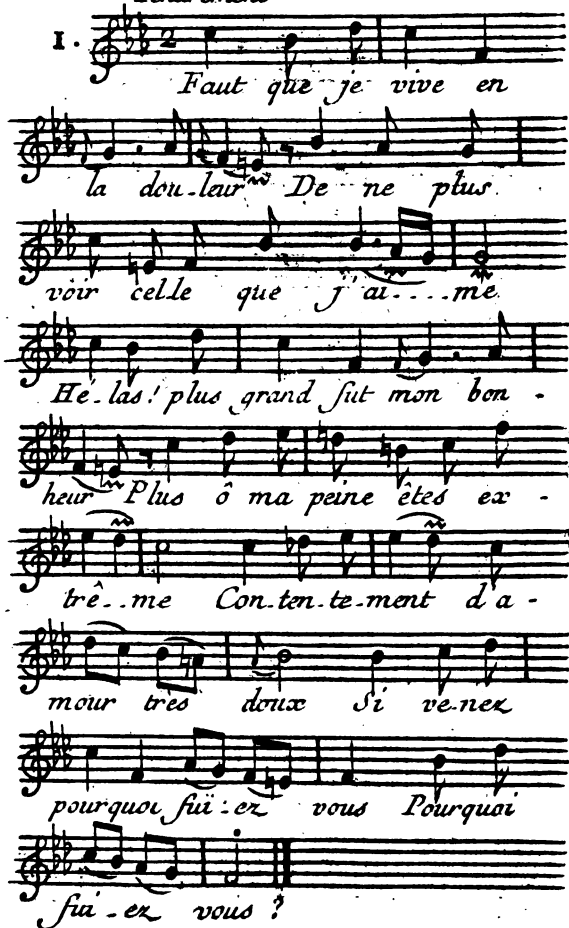 I.
Faut que je vive en
la dou-leur De ne plus
voir cel-le que j'ai....me
Hé-las! plus grand fut mon bon-
heur Plus ô ma peine êtes ex-
trê..me Con-ten-te-ment d'a-
mour très doux Si ve-nez
pourquoi fuï-ez vous Pourquoi
fui-ez vous?